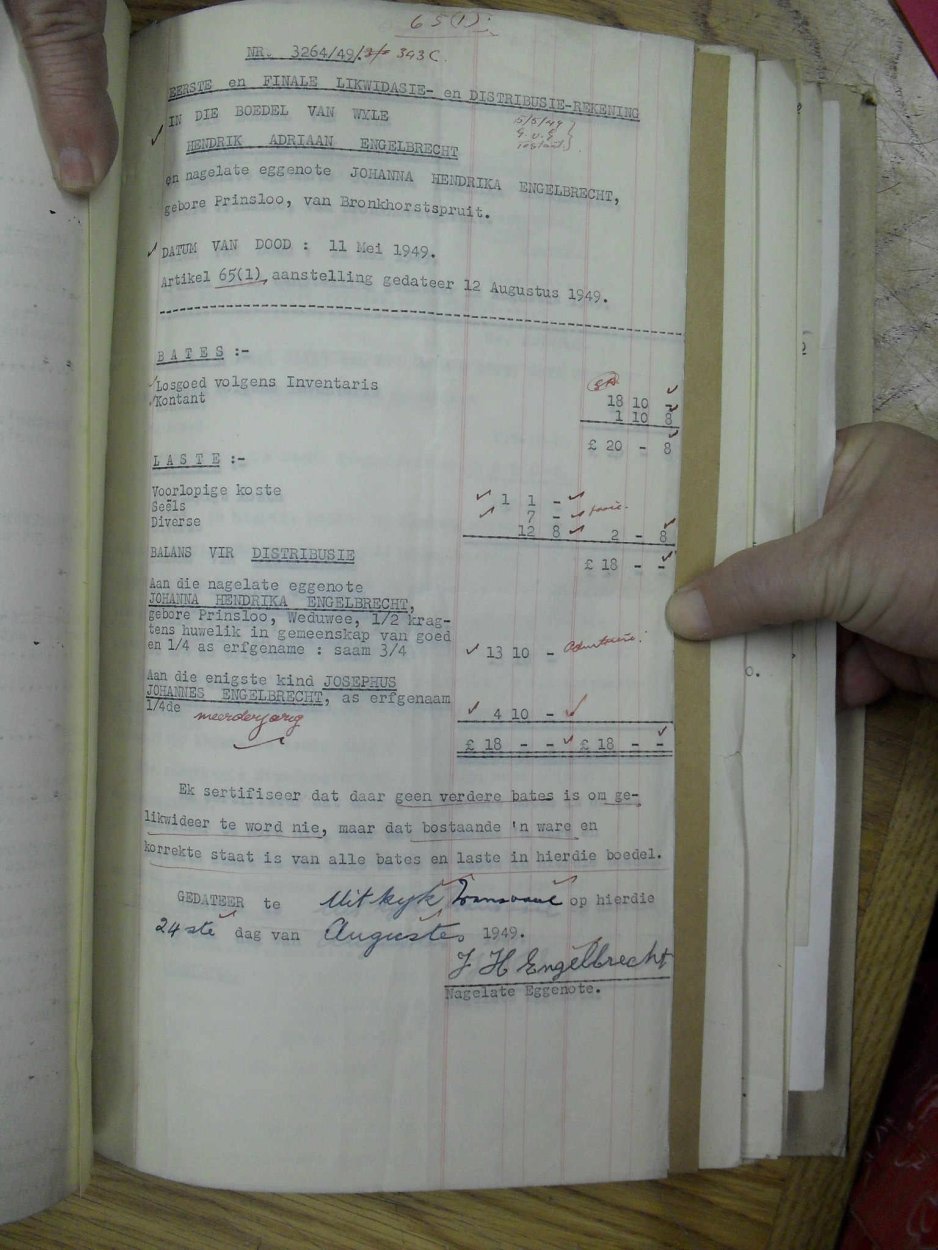 65(1).
NR. 3264/49/ 343C.
EERSTE en FINALE LIKWIDASIE- en DISTRIBUSIE-REKENING
IN DIE BOEDEL VAN WYLE
HENDRIK ADRIAAN ENGELBRECHT
en nagelate eggenote JOHANNA HENDRIKA ENGELBRECHT,
gebore Prinsloo, van Bronkhorstspruit.
DATUM VAN DOOD : 11 Mei 1949.
Artikel 65(1), aanstelling gedateer 12 Augustus 1949.
BATES :-
Losgoed volgens Inventaris 18 10 -
Kontant 1 10 8
£ 20 - 8
LASTE :-
Voorlopige koste 1 1 -
Seëls 7 -
Diverse 12 8 2 - 8
BALANS VIR DISTRIBUSIE £ 18 - -
Aan die nagelate eggenote
JOHANNA HENDRIKA ENGELBRECHT,
gebore Prinsloo, Weduwee, 1/2 krag-
tens huwelik in gemeenskap van goed
en 1/4 as erfgename : saam 3/4 13 10 -
Aan die enigste kind JOSEPHUS
JOHANNES ENGELBRECHT, as erfgenaam
1/4de 4 10 -
meerderjarig
£ 18 - - £ 18 - -
Ek sertifiseer dat daar geen verdere bates is om ge-
likwideer te word nie, maar dat bostaande 'n ware en
korrekte staat is van alle bates en laste in hierdie boedel.
GEDATEER te Uitkyk Transvaal op hierdie
24ste dag van Augustus 1949.
J H Engelbrecht
Nagelate Eggenote.